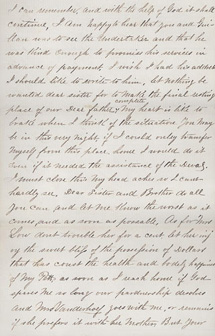 I can remember, and with the help of God it shall
continue, I am happy to hear that you and
Man was to see the Undertaker and that he
was kind enough to promise his services in
advance of payment, I wish I had his address
I should like to write to him, let nothing be
wanted dear sister for to make the final resting
complete
place of our Dear father, My heart is like to
break when I think of the situation you may
be in this very night, if I could only transfer
Myself from this place home I would do it
even if it needed the assistance of the Devil,
I must close this My head aches so I can
hardly see, Dear Sister and Brother do all
you can, and let me know the worst as it
comes and as soon as possible, As for
don't trouble her for a cent let her
by the sweet sleep of the of Dollars
that has cost the health and bodily happiness
of My as soon as I reach home if God
spares me so long our partnership dissolves
and Mrs goes with me, or remains
if she prefers it with her Mother But